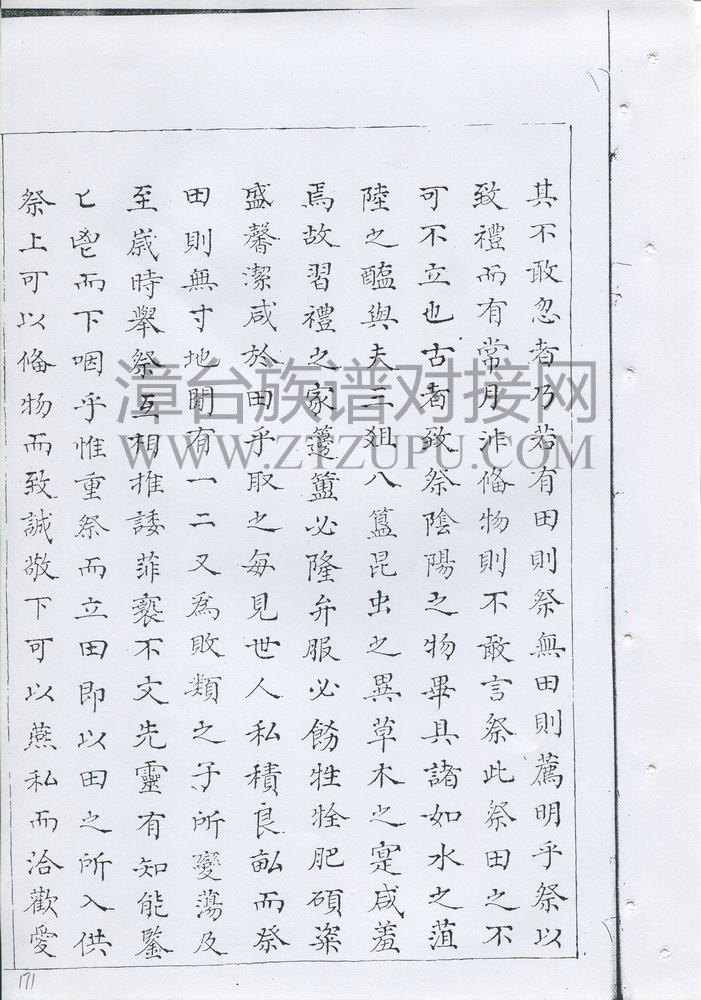 其不敢忽者乃若有田則祭無田則薦明乎祭以
致禮而有常月非俻物則不敢言祭此祭田之不
可不立也古者致祭陰陽之物畢具諸如水之菹
陸之醢與夫三俎八簋昆虫之異草木之寔咸羞
焉故習禮之家籩簠必隆弁服必餝牲牷肥碩粢
盛馨潔咸於田乎取之每見世人私積良畝而祭
田則無寸地閒有一二又為敗類之子所變蕩及
至歲時舉祭互相推諉菲褻不文先靈有知能鑒
匕鬯而下咽乎惟重祭而立田即以田之所入供
祭上可以俻物而致誠敬下可以燕私而洽歡愛
171
漳台族谱对接网
WWW.ZTZUPU.COM